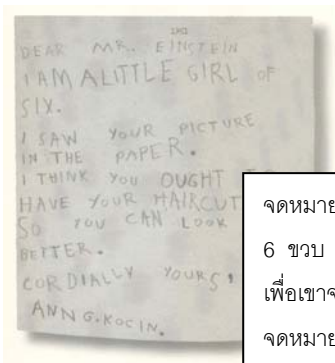 DEAR MR. EINSTEIN
I AM ALITTLE GIRL OF
SIX.
I SAW YOUR PICTURE
IN THE PAPER.
I THINK YOU OUGHT
HAVE YOUR HAIRCUT
SO YOU CAN LOOK
BETTER.
CORDIALLY YOURS,
ANN G. KOCIN.
จดหมาย
6 ขวบ
เพื่อเขาจ
จดหมาย